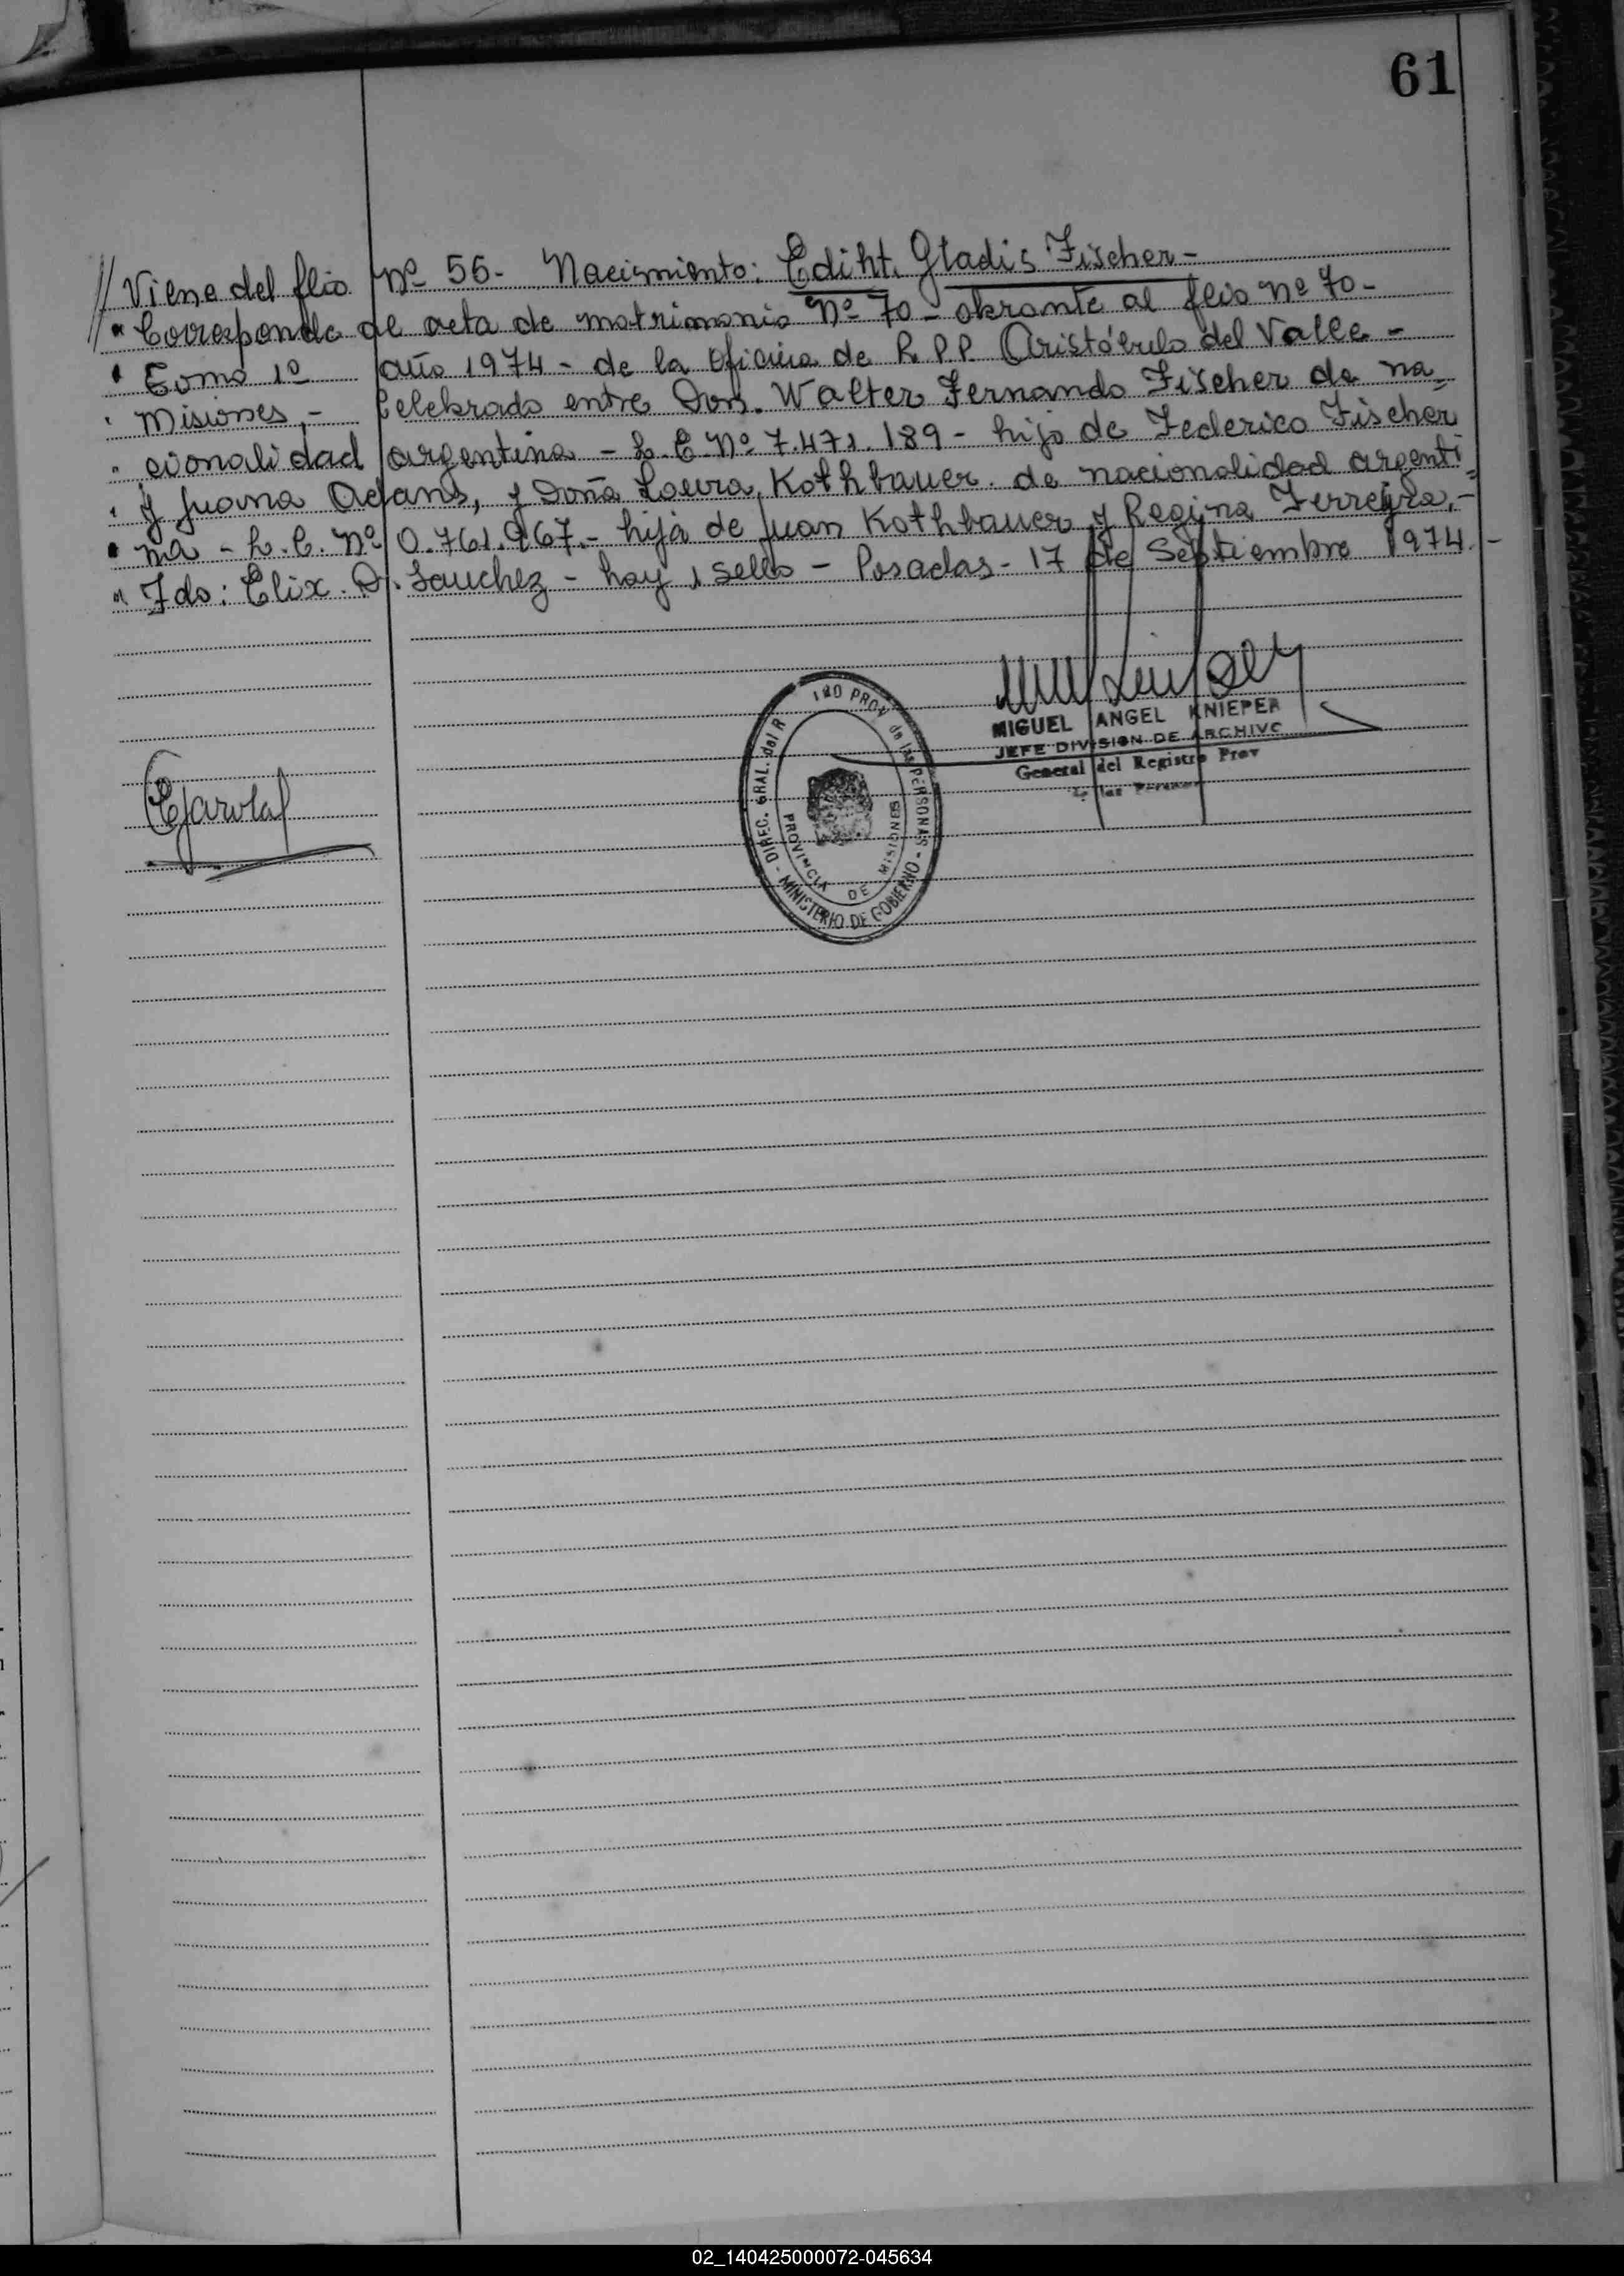 61
// Viene del flio Nº 56- Nacismiento: Ediht. Gladis Fischer-
" Corresponde al acta de matrimonio Nº 70- obrante al flio nº 70-
" Tomo 1º año 1974 - de la Oficina de R.P.P. Aristóbulo del Valle -
" Misiones,- Celebrado entre Don. Walter Fernando Fischer de na=
" cionalidad argentina - L.E. Nº 7.471.189- hijo de Federico Fischer
" y Juana Adans, y Doña Laura, Kothbauer. de nacionalidad argenti=
" na - L.C. Nº 0.761.967.- hija de Juan Kothbauer y Regina Ferreyra,-
" Fdo: Elix. D. Sanchez - hay 1 sello - Posadas - 17 de Septiembre 1974.-
MIGUEL ANGEL KNIEPER
JEFE DIVISION DE ARCHIVO
General del Registro Prov
de las Personas
DIREC. GRAL. del R PROV de las PERSONAS - MINISTERIO DE GOBIERNO -
PROVINCIA DE MISIONES
02_140425000072-045634